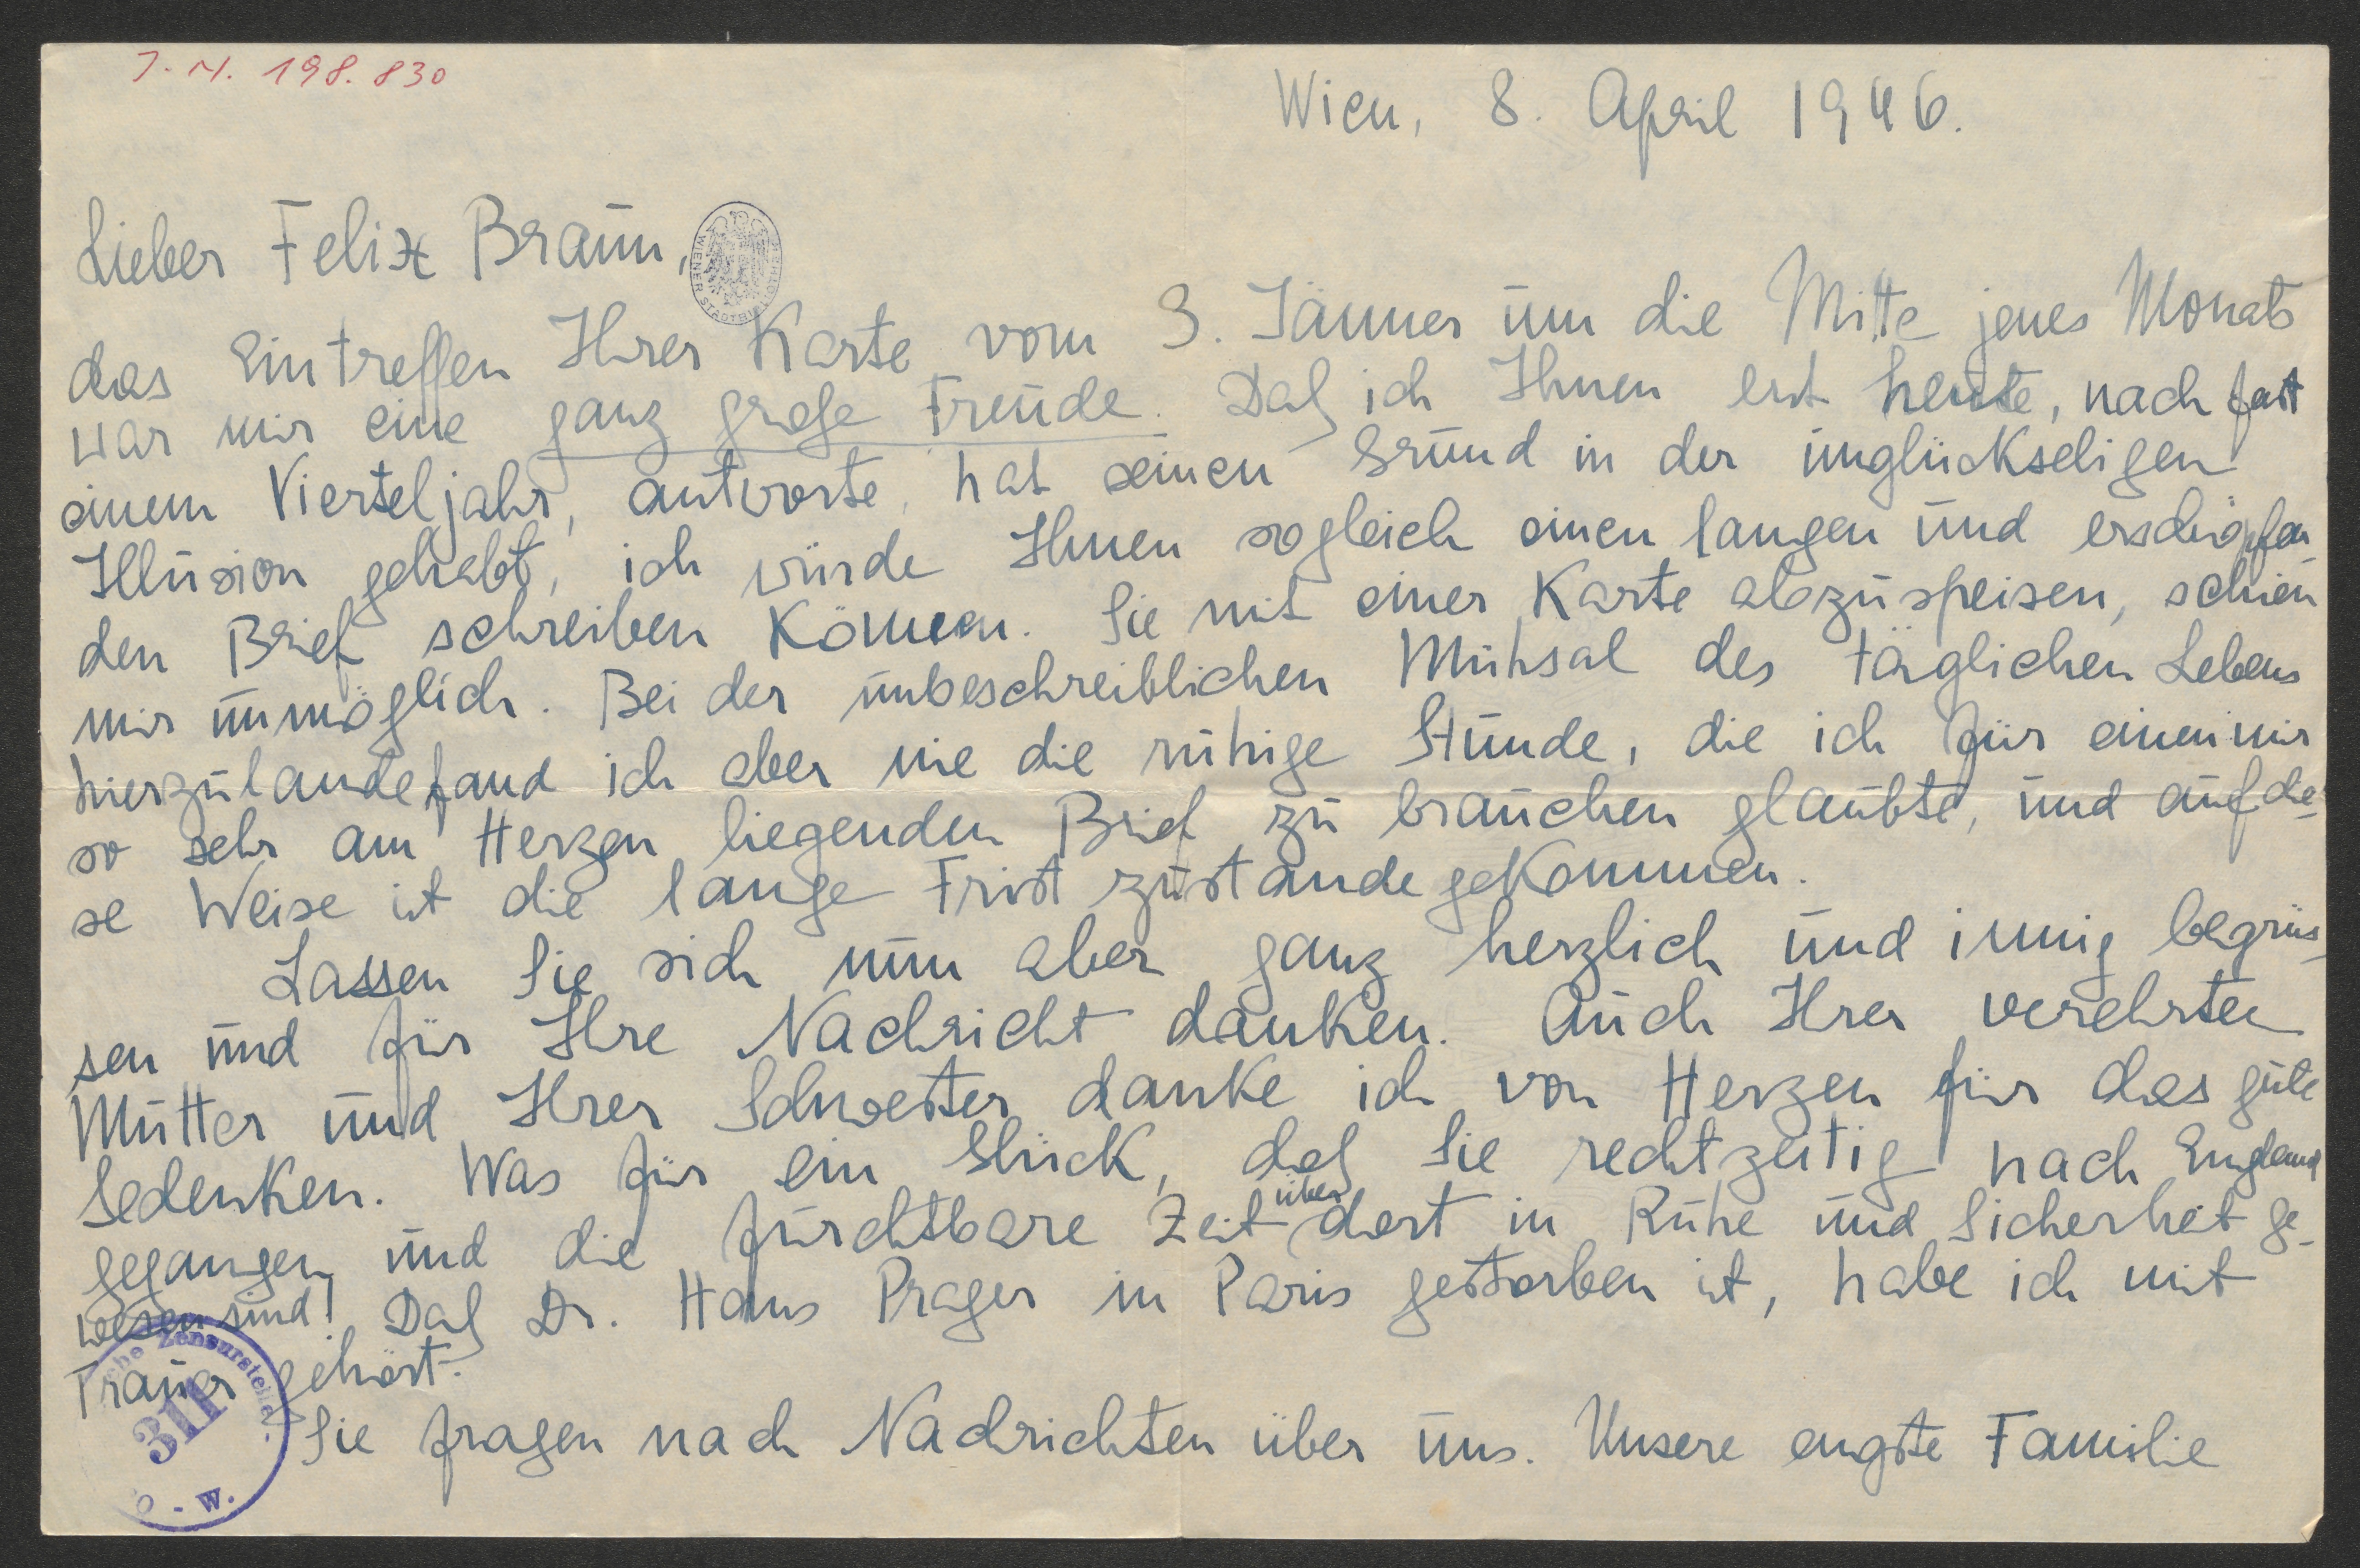 J. N. 198.830
Wien, 8. April 1946.
Lieber Felix Braun,
WIENER STADTBI
das Eintreffen Ihrer Karte vom 3. Jänner um die Mitte jenes Monats
war mir eine ganz große Freude. Daß ich Ihnen erst heute, nach fast
einem Vierteljahr, antworte, hat seinen Grund in der unglückseligen
Illusion gehabt, ich würde Ihnen sogleich einen langen und erschöpfen
den Brief schreiben können. Sie mit einer Karte abzuspeisen, schien
mir unmöglich. Bei der unbeschreiblichen Mühsal des täglichen Lebens
hierzulande fand ich aber nie die ruhige Stunde, die ich für einen mir
so sehr am Herzen liegenden Brief zu brauchen glaubte, und auf die-
se Weise ist die lange Frist zustande gekommen.
Lassen Sie sich nun aber ganz herzlich und innig begrüs-
sen und für Ihre Nachricht danken. Auch Ihrer verehrten
Mutter und Ihrer Schwester danke ich von Herzen für das gute
Gedenken. Was für ein Glück, daß Sie rechtzeitig nach England
gegangen und die furchtbare Zeit über dort in Ruhe und Sicherheit ge-
wesen sind! Daß Dr. Hans Prager in Paris gestorben ist, habe ich mit
Trauer gehört.
che Zensurstelle
311
- W.
Sie fragen nach Nachrichten über uns. Unsere engste Familie